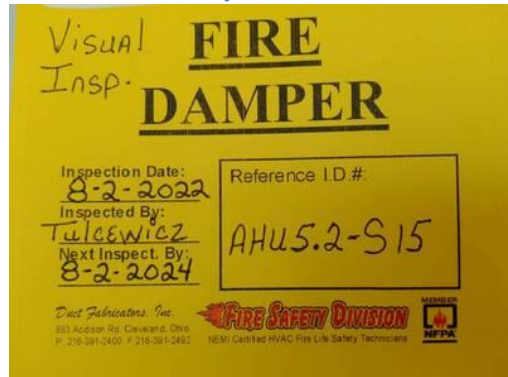 Visual
Insp.
FIRE
DAMPER
Inspection Date:
8-2-2022
Inspected By:
Tulcewicz
Next Inspect. By:
8-2-2024
Reference I.D.#:
AHU5.2-S15
Duct Fabricators, Inc.
883 Addison Rd. Cleveland, Ohio
P. 216-391-2400 F. 216-391-2492
FIRE SAFETY DIVISION
NEMI Certified HVAC Fire Life Safety Technicians
MEMBER
NFPA